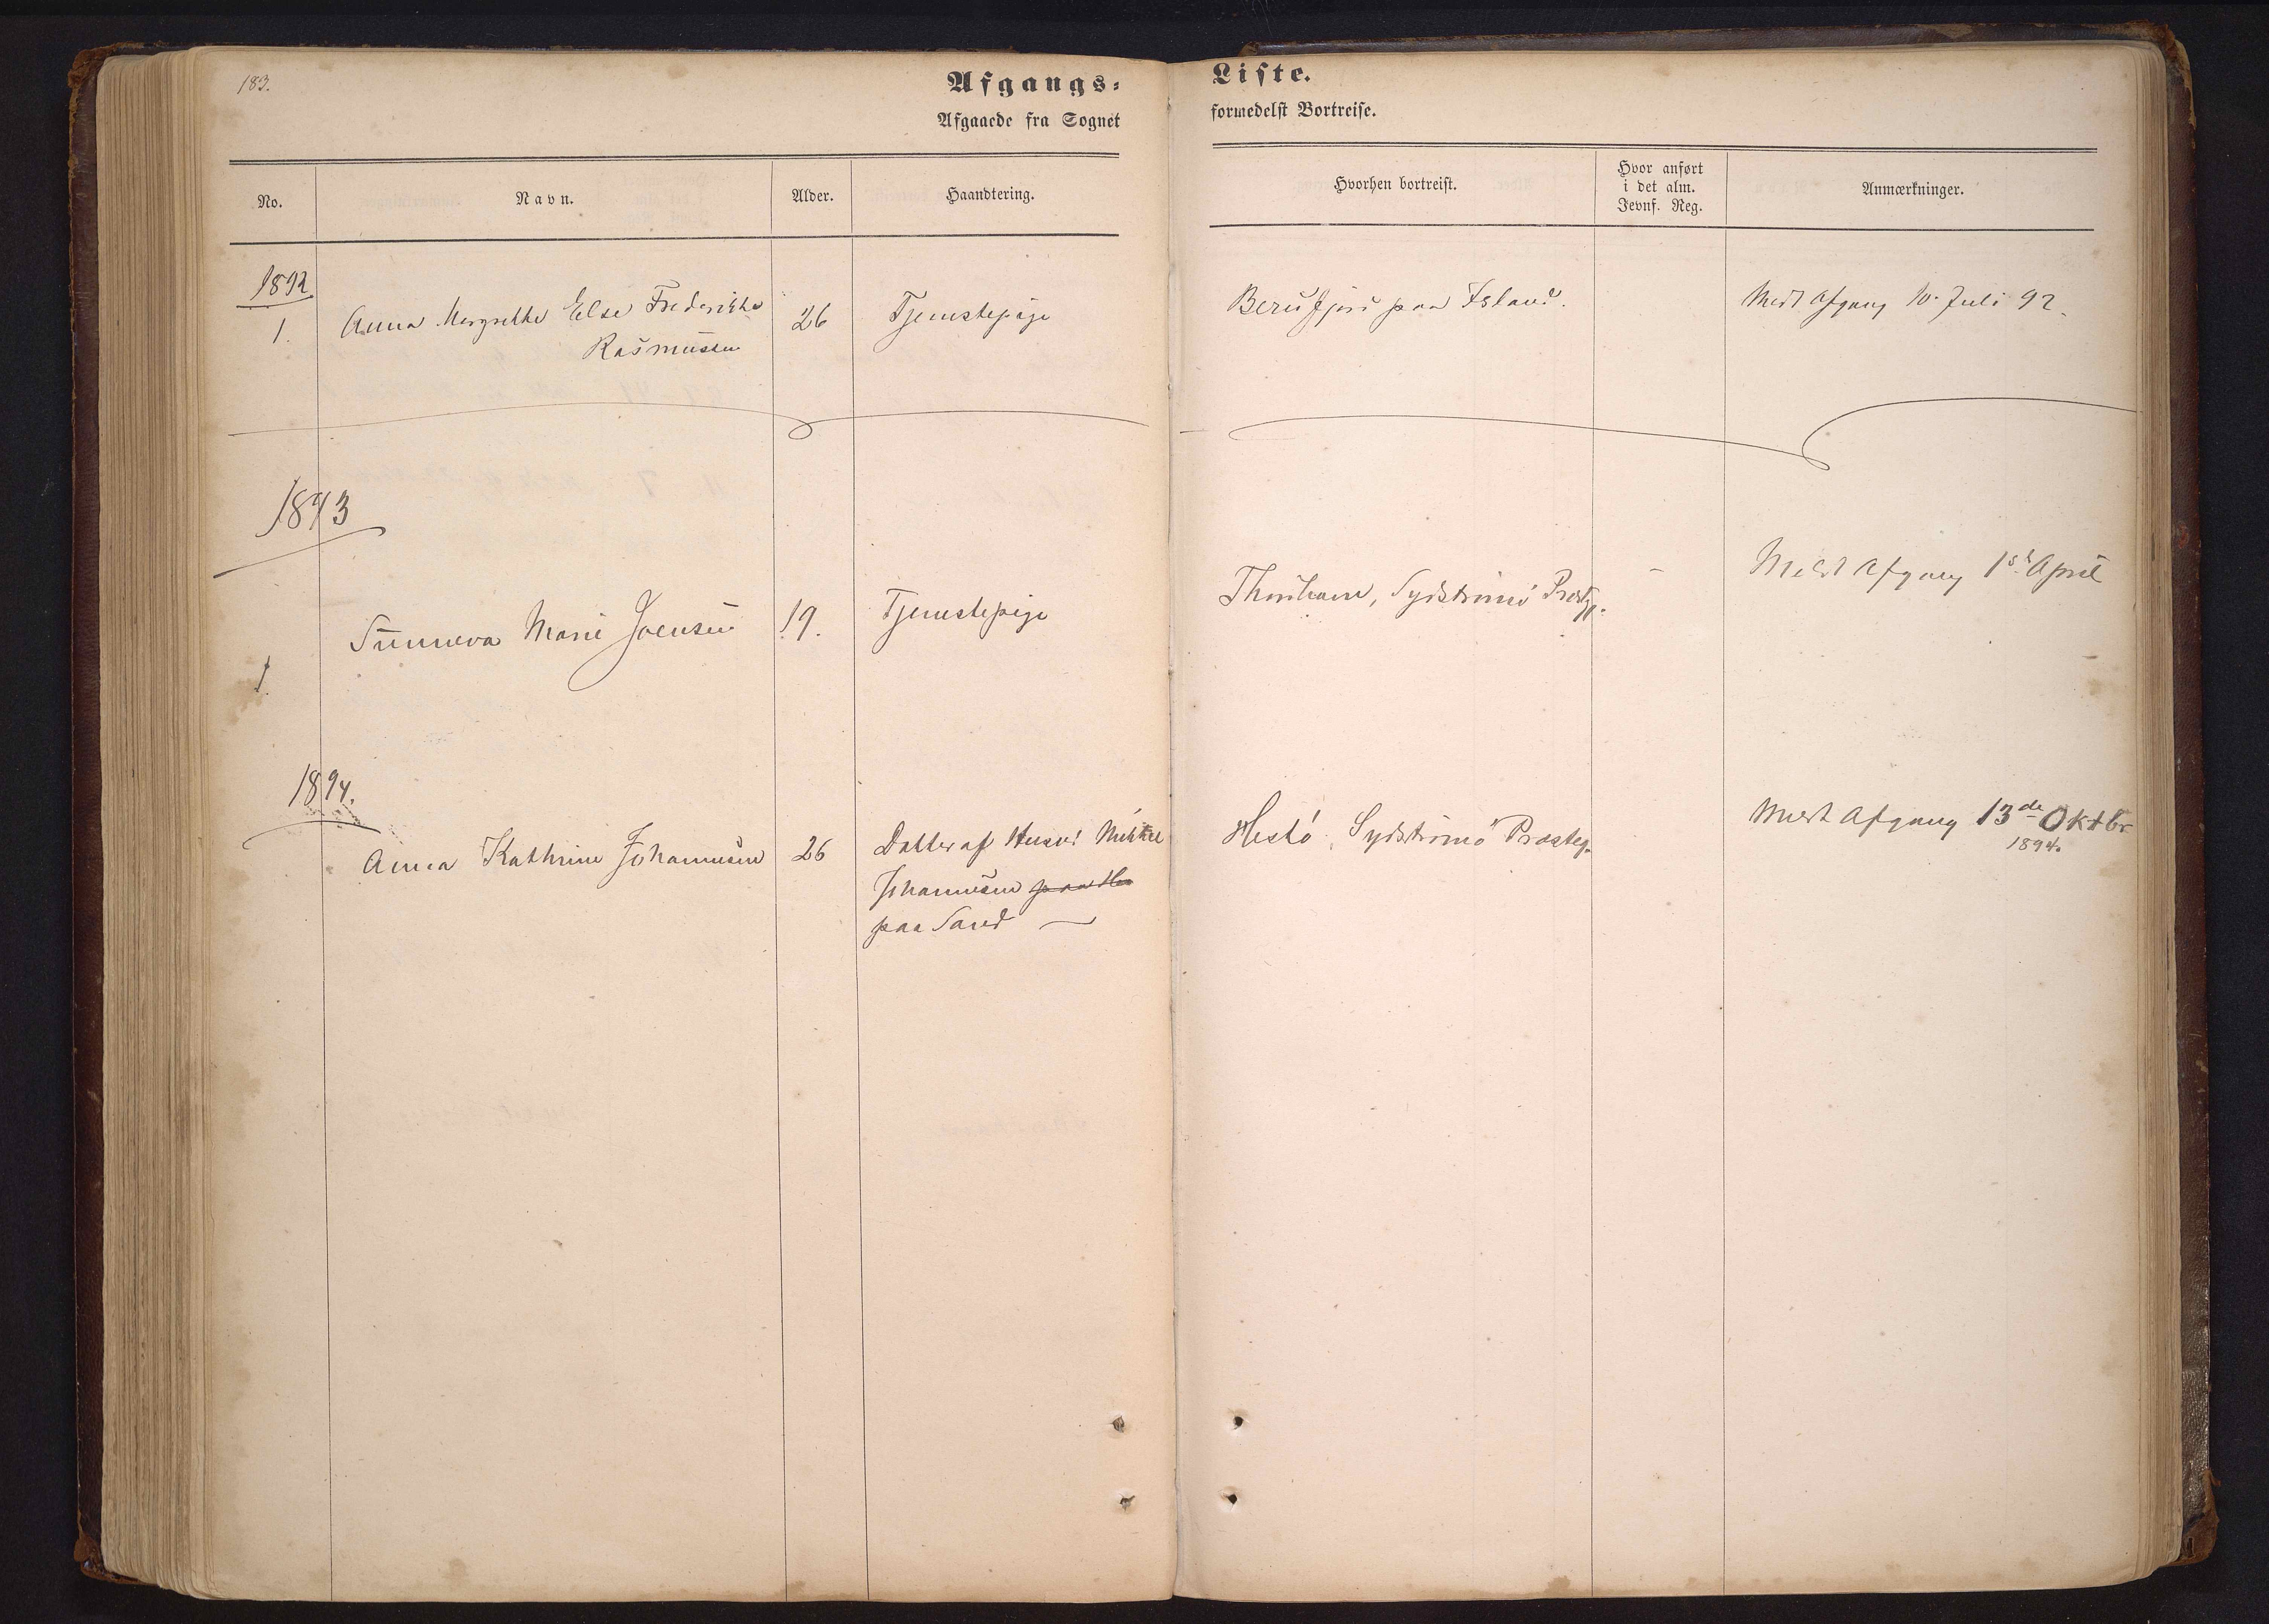 183.
Afgangs=
Liste.
Afgaaede fra Sognet
formedelst Bortreise.
No.
Navn.
Alder.
Haandtering.
Hvorhen bortreist.
Hvor anført
i det alm.
Jevnf. Reg.
Anmærkninger.
1892
1. Anna Margrethe Else Frederikke 26 Tjenestepige Berufjord paa Island. Meldt Afgang 10. Juli 92.
Rasmussen
1893
Sunneva Marie Joensen 19. Tjenestepige Thorshavn, Sydströmö Præstg. – Meldt Afgang 1ste April
1.
1894.
Anna Kathrine Johannesen 26 Datter af Husm: Mikkel Hestö, Sydströmö Præsteg. Meldt Afgang 13de Oktbr
1894.
Johannesen paa
paa Sand —